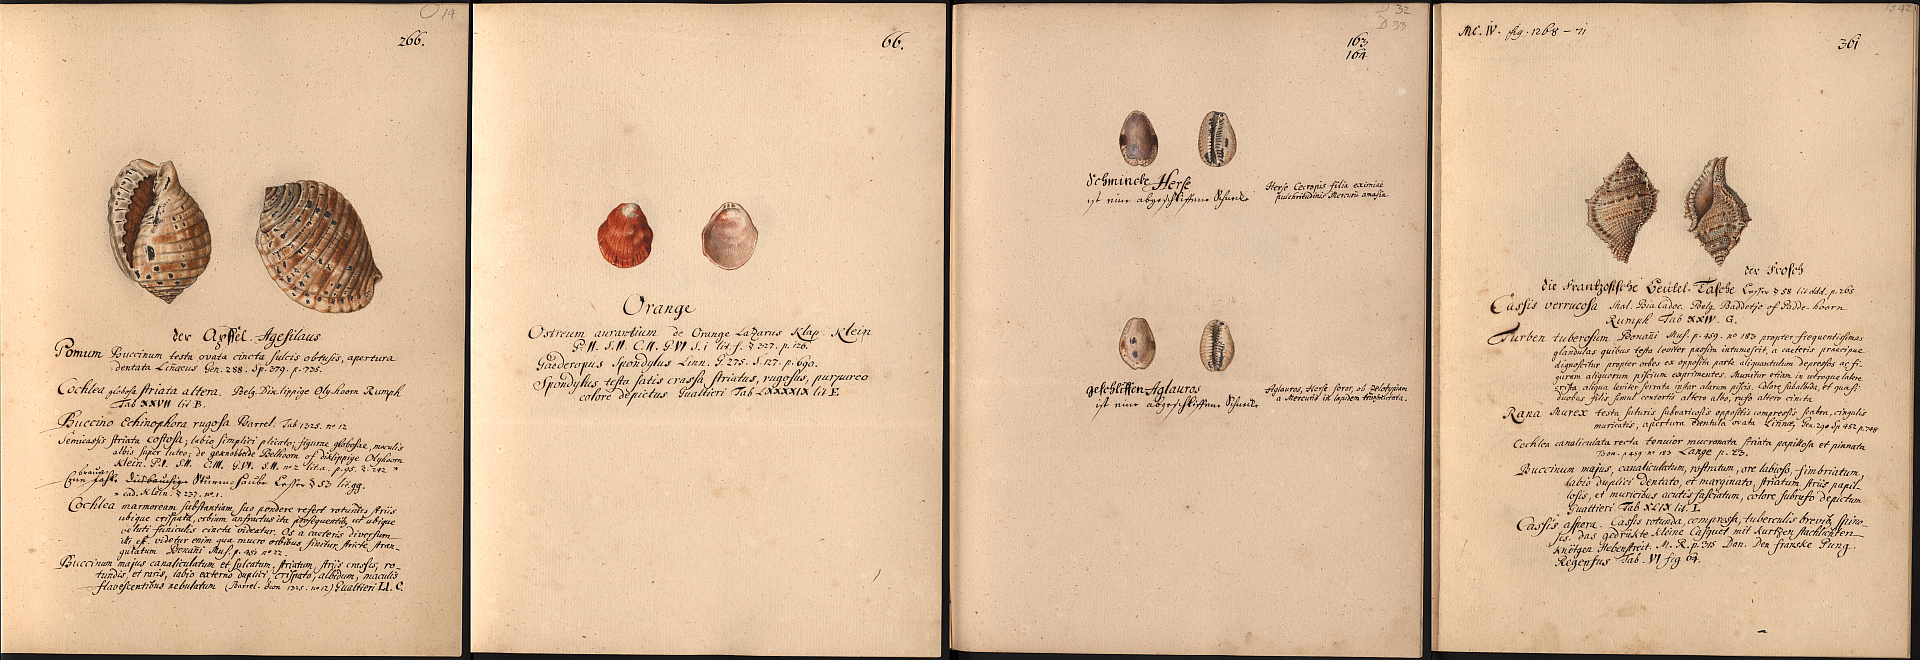 O 14
266.
der Apffel. Agesilaus
Pomum Buccinum testa ovata cincta sulcis obtusis, apertura
dentata Linaeus Gen. 288. Sp. 379. p. 735.
Cochlea globosa striata altera. Belg. Dik lippige Olyhoorn Rumph
Tab XXVII lit B.
Buccino Echinophora rugosa Barrel. Tab 1325. no 12
Semicassis striata costosa; labio simplici plicato; figurae globosae, maculis
albis super luteo; de geknobbelde Belhoorn of diklippige Olyhoorn
Klein. P. I. S. II. C. III. G. VI. S. II. no 2 lit. a. p. 95. § 242 *
Sturmhaube Lesser § 53 lit. gg.
* ead. Klein. § 237. no. 1.
Cochlea marmoream substantiam, suo pondere refert rotundis striis
ubique crispata, orbium anfractus ita prosequentib, ut ubique
veluti funiculis cincta videatur. Os a caeteris diversum
illi est. videtur enim qua mucro orbibus finitur stricte stran-
gulatum Bonani Mus. p. 451 no 22.
Buccinum majus canaliculatum et sulcatum, striatum, striis crassis, ro-
tundis, et raris, labio externo duplici, crispato, albidum, maculis
flavescentibus nebulatum (Barrel. 1325. no 12) Gualtieri LI. C.
66.
Orange
Ostreum aurantium de Orange Lazarus Klap. Klein
P. II. S. II. C. II. G. VI S. i lit. f. § 327. p. 126.
Gaederopus Spondylus Linn. G. 275. S. 127. p. 690.
Spondylus testa satis crassa striatus, rugosus, purpureo
colore depictus Gualtieri Tab LXXXXIX lit E
D 32
D 33
163
164
Schmincke Herse
ist eine abgeschliffene Schnecke
Herse Cecropis filia eximiae
pulchritudinis Mercurii amasia
geschliffen Aglauros
ist eine abgeschliffene Schnecke
Aglauros, Herse soror, ob zelotypiam
a Mercurio in lapidem
MC. IV. fig. 1268 - 71
361
der Frosch
die Frantzosische Beutel-Tasche Lesser § 58 lit ddd. p. 265
Cassis verrucosa Mal. Bia Cadoc. Belg. Paddetje of Padde-hoorn
Rumph Tab XXIV. G.
Turben tuberosum Bonani Mus. p. 459. no 183 propter frequentissimas
glandulas quibus testa leviter passim intumescit, a caeteris praecipue
dignoscitur propter orbes ex opposita parte aliquantulum depressos ac fi-
guram aliquorum piscium exprimentes. Munitur etiam in utroque latere
crista aliqua leviter serrata instar alarum piscis. Colore subalbido, et quasi
duobus filis simul contortis altero albo, rufo altero cincta
Rana Murex testa suturis subvaricosis oppositis compressis scabra, cingulis
muricatis, apertura dentula ovata Linnaeus Gen. 290 Sp 452 p. 748
Cochlea canaliculata recta tenuior mucronata striata papillosa et pinnata
Bon. p 459 no 183 Lange p. 23.
Buccinum majus, canaliculatum, rostratum, ore labioso, fimbriatum,
labio duplici dentato, et marginato, striatum striis papil-
losis, et muricibus acutis fasciatum, colore subrufo depictum
Gualtieri Tab XLIX lit. L
Cassis aspera. Cassis rotunda, compressa, tuberculis brevib, spino-
sis. das gedrükte kleine Casquet mit kurtzen stachlichten
Knötgen Hebenstreit. M. R. p. 315 Dan. Den franske Pung.
Regenfus Tab. VI fig 64.